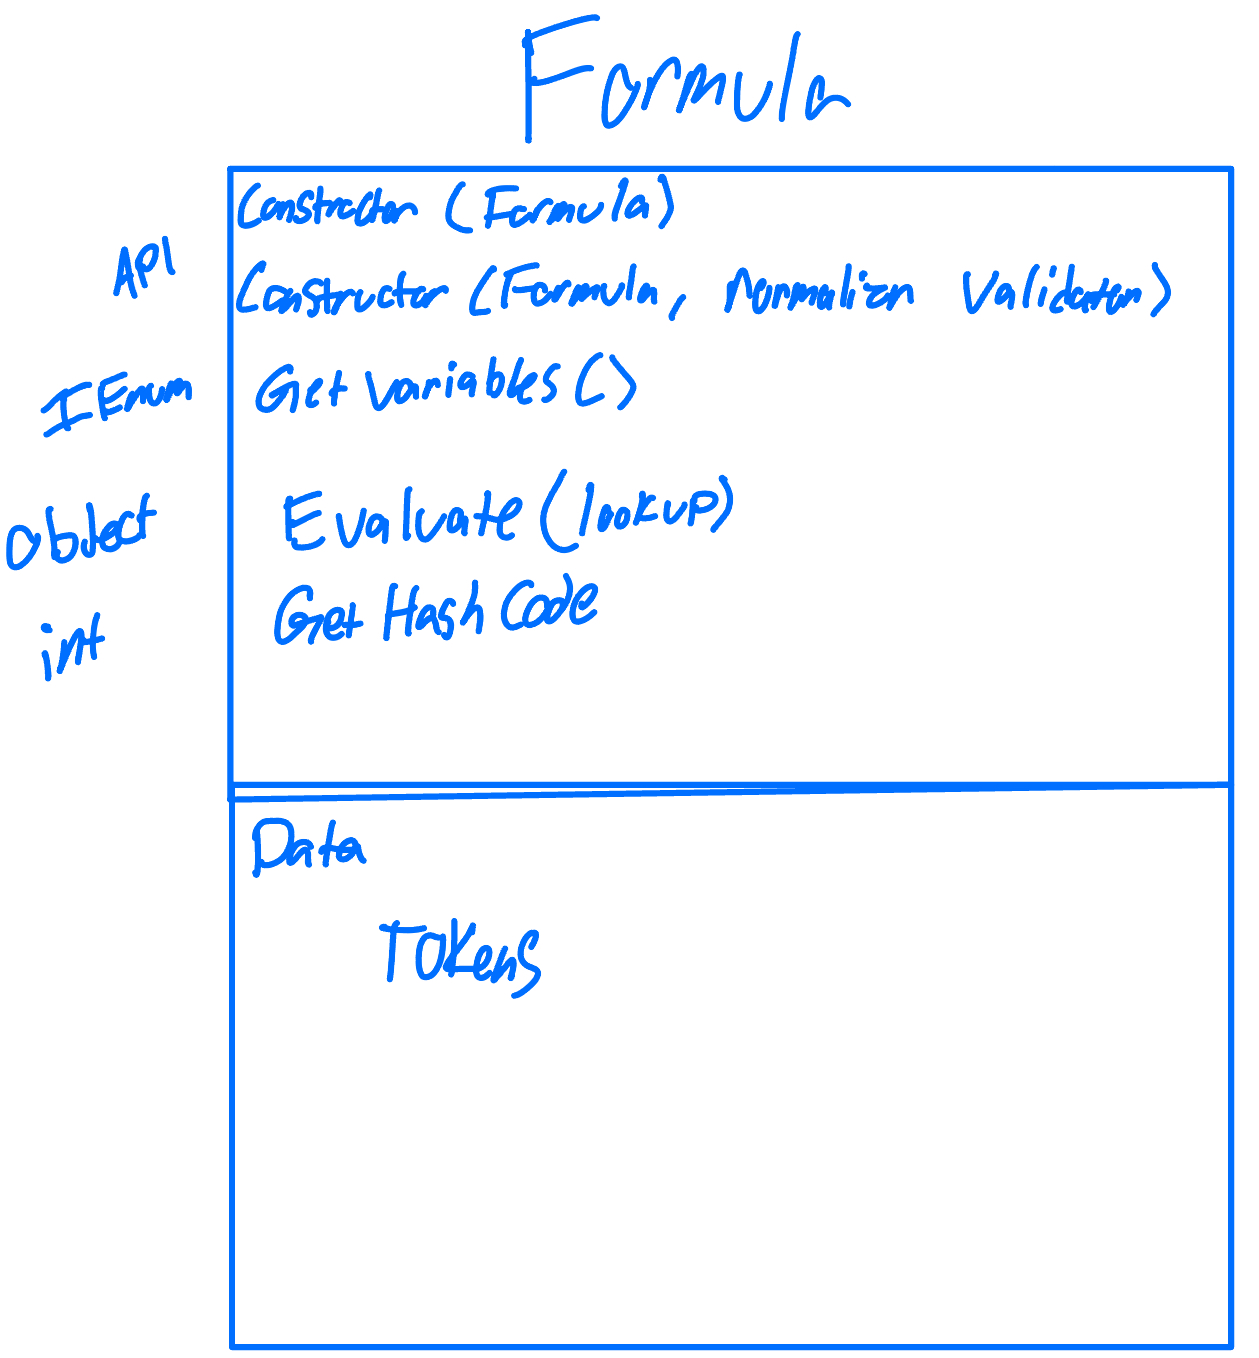 Formula
Constructor (Formula)
API
Constructor (Formula, Normalizer Validator)
IEnum Get Variables ()
Object Evaluate (lookup)
int Get Hash Code
Data
Tokens